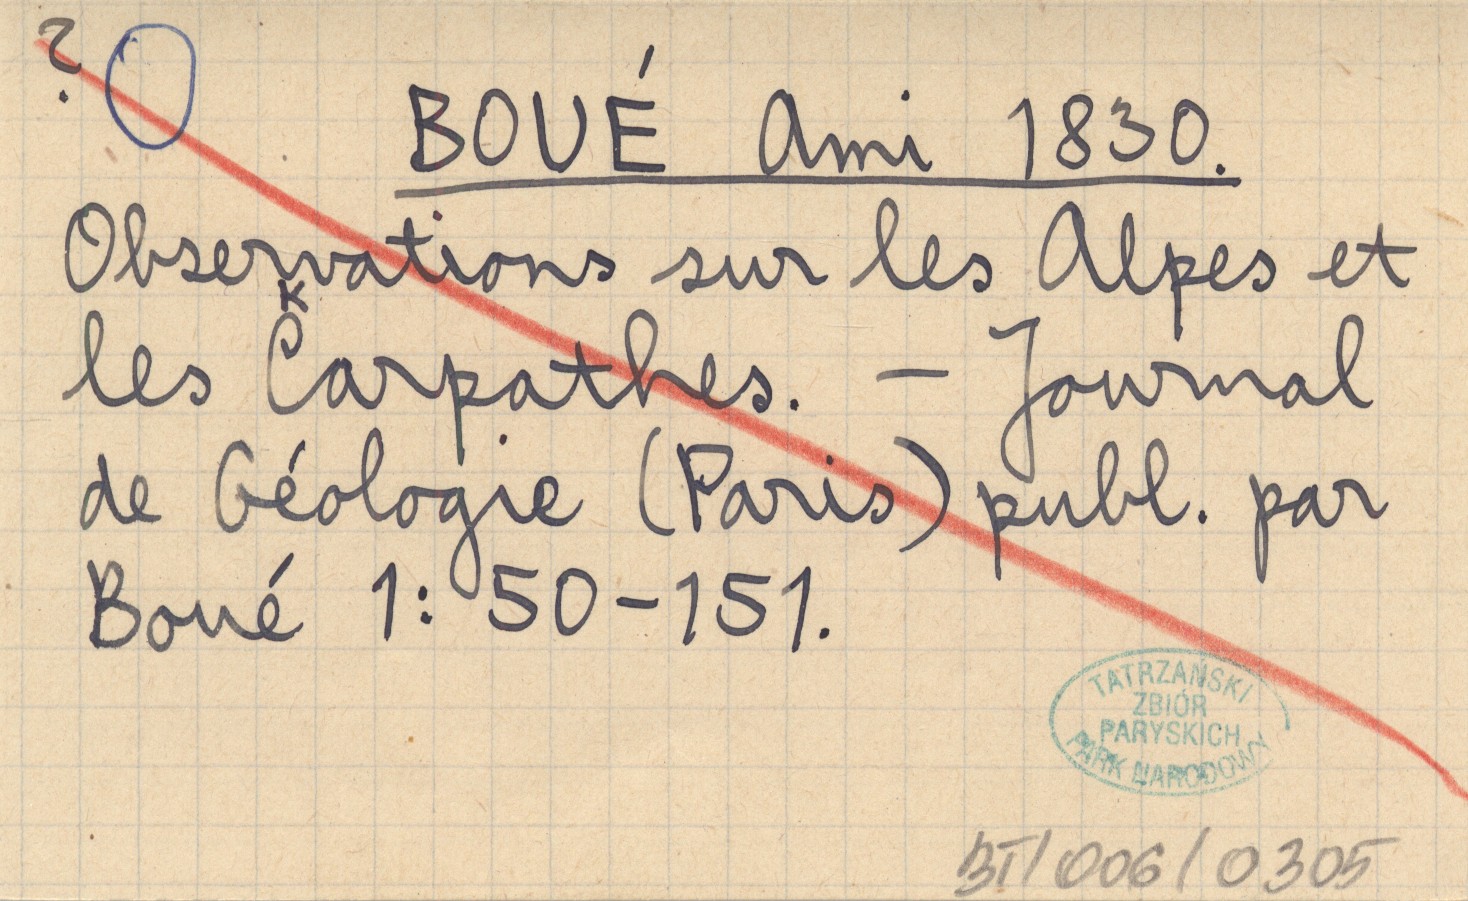 ?
BOUÉ Ami 1830.
Observations sur les Alpes et
K
les Carpathes. – Journal
de Géologie (Paris) publ. par
Boué 1: 50–151.
TATRZAŃSKI
ZBIÓR
PARYSKICH
PARK NARODOWY
BT/006/0305